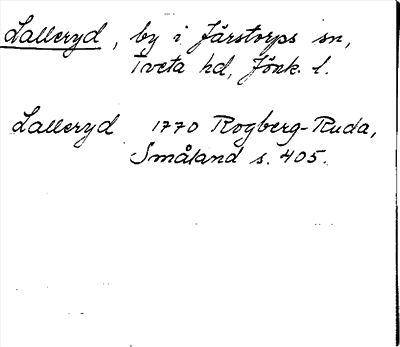 Lalleryd, by i Järstorps sn,
Tveta hd, Jönk. l.
Lalleryd 1770 Rogberg-Ruda,
Småland s. 405.